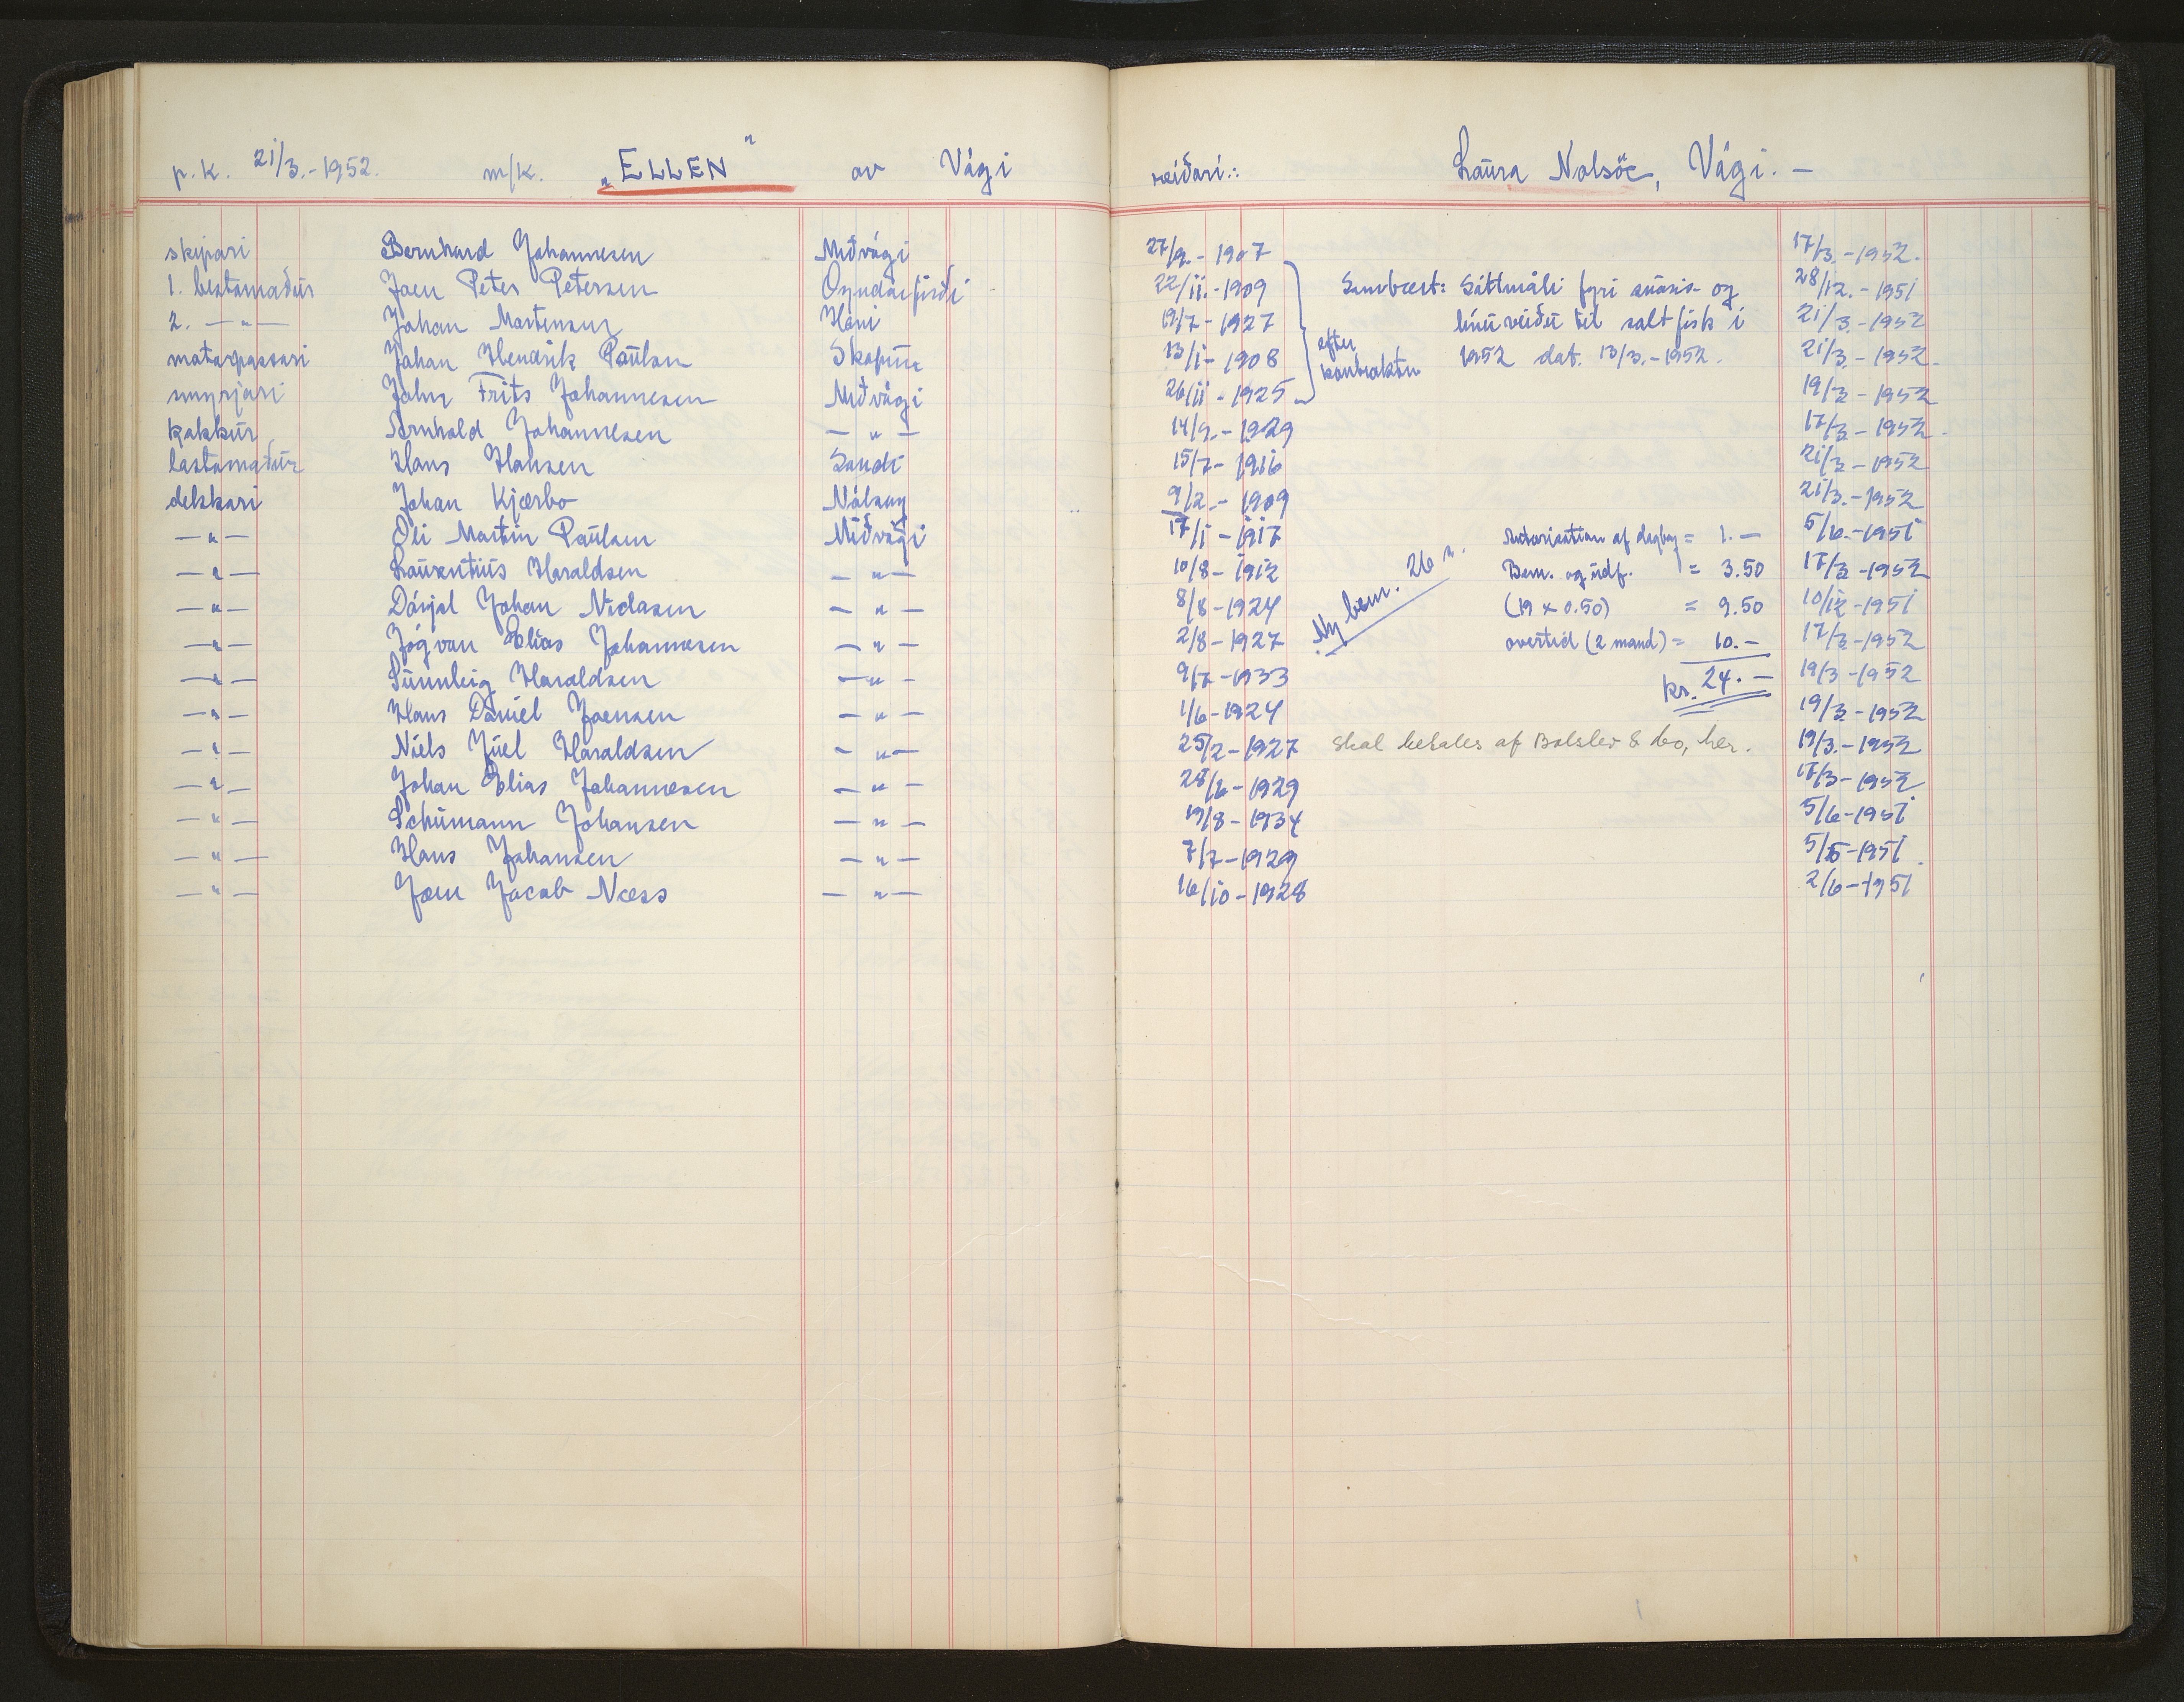 p.k. 21/3.-1952. m/k. „ELLEN" av Vági reiðari.: Laura Nolsöe, Vági. —
skipari Bernhard Johannesen Miðvági 27/9.-1907 17/3.-1952.
1. bestamaður Joen Peter Petersen Oyndarfirði 22/11.-1909 28/12.-1951
2. —"— Johan Martensen Hóvi 19/7-1927 21/3-1952
matarpassari Johan Hendrik Paulsen Skopun 13/1-1908 21/3.-1952.
smyrjari John Frits Johannesen Miðvági 26/11-1925 19/3-1952
kokkur Arnhold Johannesen —"— 14/9.-1929 17/3-1952.
lastamaður Hans Hansen Sandi 15/7-1916 21/3-1952
dekkari Johan Kjærbo Nólsoy 9/2.-1909 21/3.-1952
—"— Oli Martin Paulsen Miðvági 17/1-1917 5/6.-1951
—"— Laurentius Haraldsen —"— 10/8-1912 17/3-1952
—"— Dánjal Johan Niclasen —"— 8/8-1924 10/12-1951
—"— Jógvan Elias Johannesen —"— 2/8-1927 17/3-1952
—"— Sunnleig Haraldsen —"— 9/7-1933 19/3-1952
—"— Hans Daniel Joensen —"— 1/6-1924 19/3-1952
—"— Niels Juel Haraldsen —"— 25/2-1927 19/3.-1952
—"— Johan Elias Johannesen —"— 28/6-1929 17/3-1952
—"— Schumann Johansen —"— 19/8-1934 5/6-1951
—"— Hans Johansen —"— 7/7-1929 5/6-1951
—"— Joen Jacob Næss —"— 16/10-1928 2/6-1951
efter
kontrakten
Sambært: Sáttmáli fyri snøris- og
línuveiðu til saltfisk í
1952 dat. 13/3.-1952.
Ny bem. 26 n.
Autorisation af dagbog = 1.—
Bem. og udf. = 3.50
(19 x 0.50) = 9.50
overtid (2 mand) = 10.—
kr. 24.—
Skal betales af Balslev & Co, her.